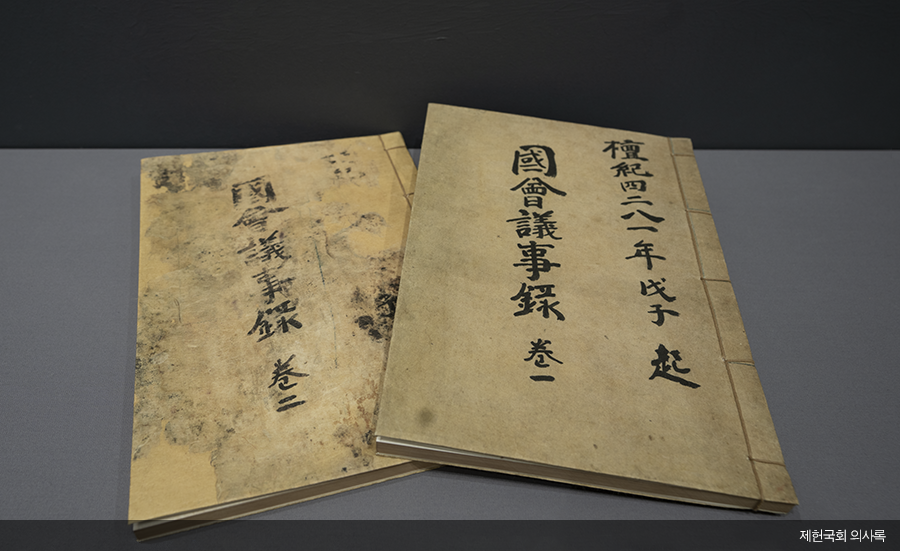 檀紀四二八一年戊子 起
國會議事錄 卷一
國會議事錄 卷二
제헌국회 의사록